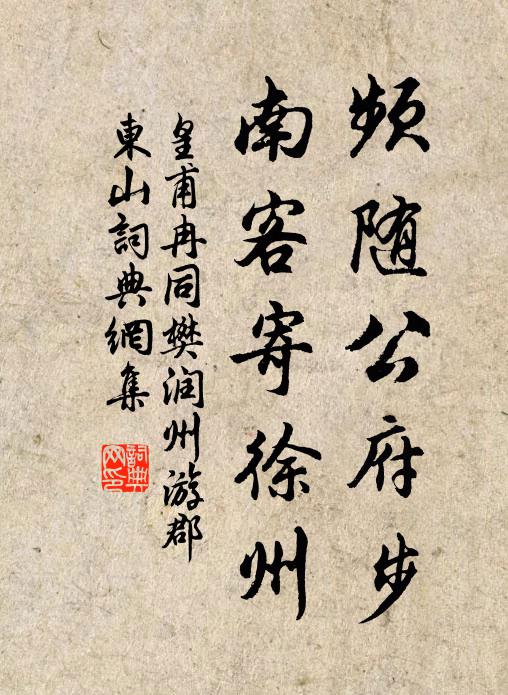 频随公府步
南客寄徐州
皇甫冉同樊润州游郡
東山詞典網集
詞典
网印